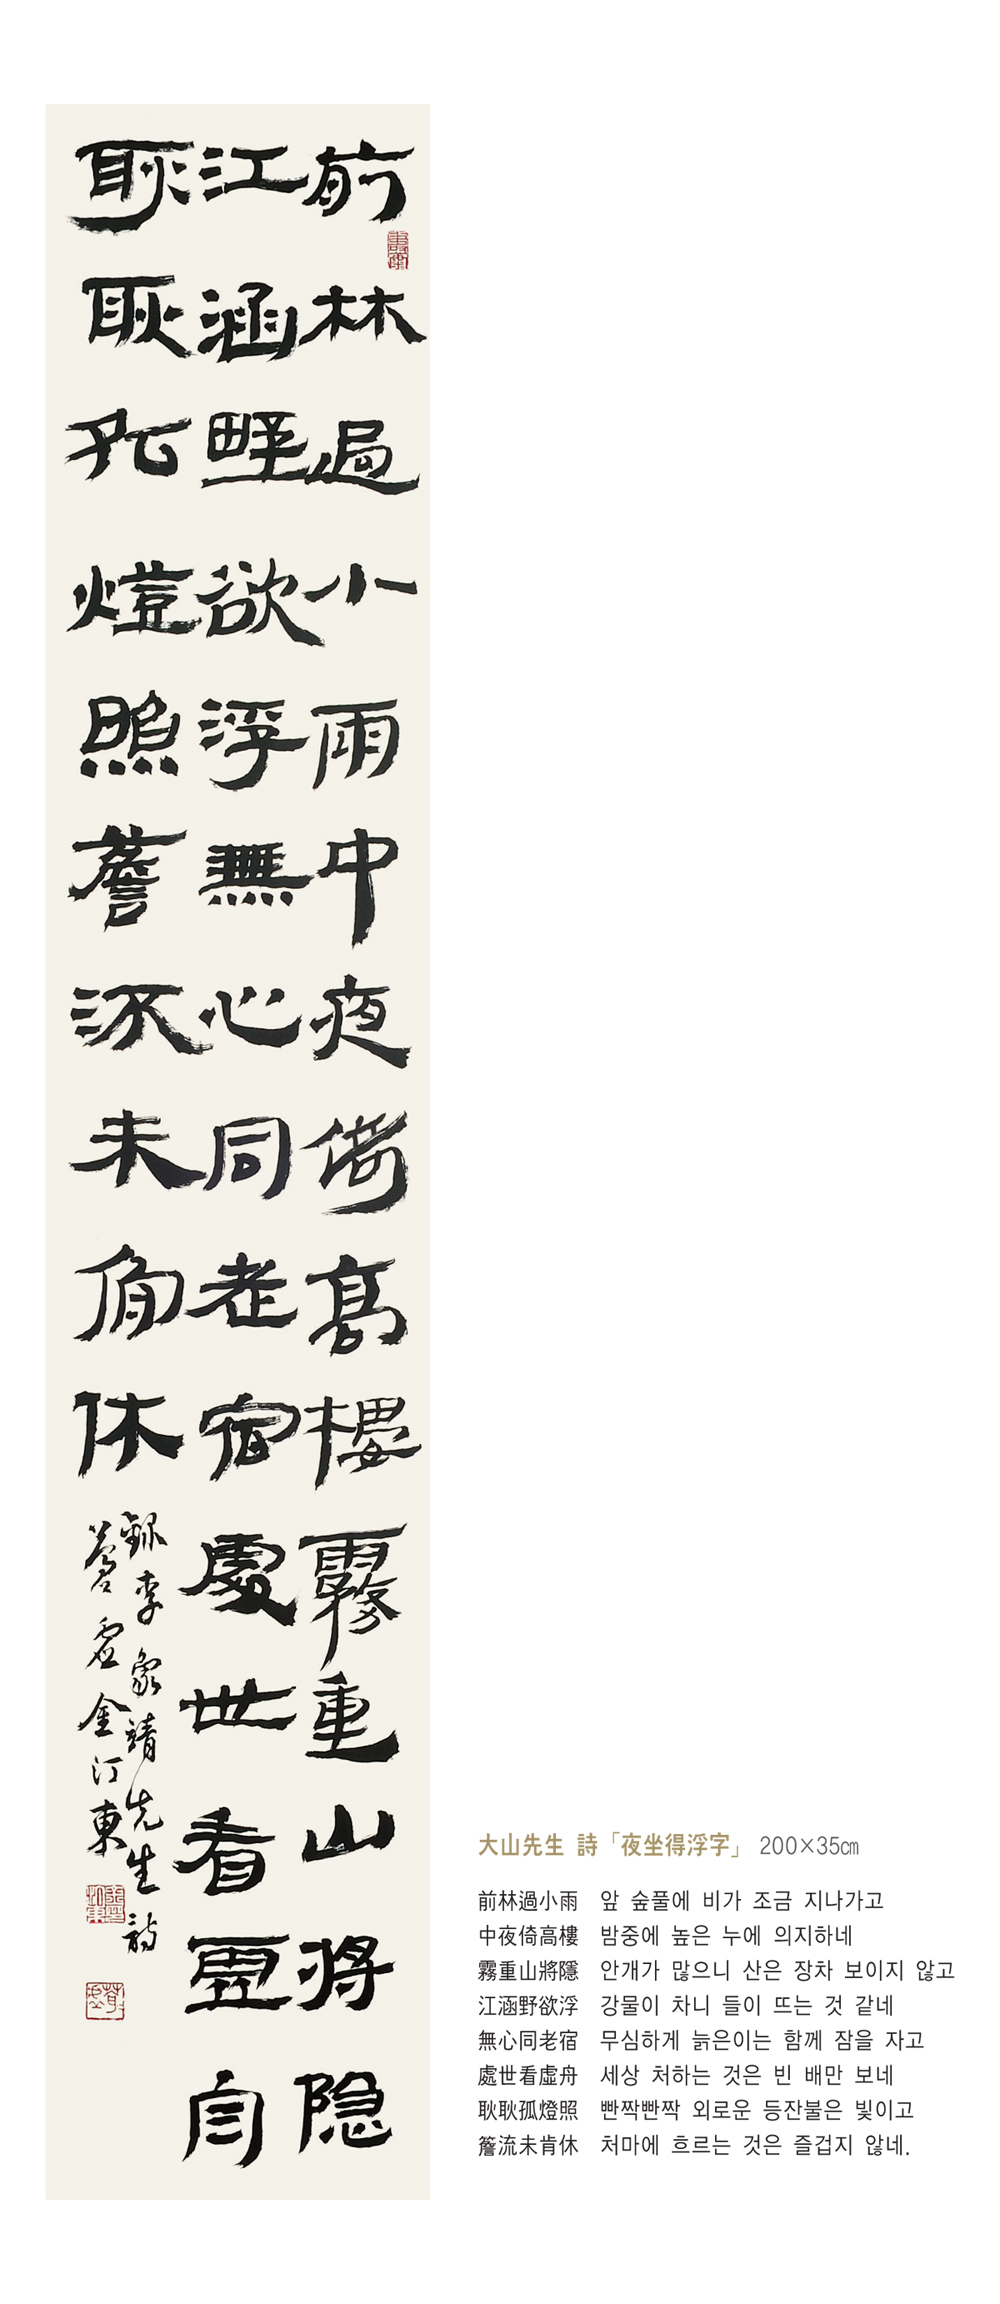 前林過小雨中夜倚高樓霧重山將隐
江涵野欲浮無心同老宿處世看虛舟
耿耿孤燈照簷流未肯休
錄李象靖先生詩
蒼虛 金江東
大山先生 詩「夜坐得浮字」 200×35㎝
前林過小雨 앞 숲풀에 비가 조금 지나가고
中夜倚高樓 밤중에 높은 누에 의지하네
霧重山將隱 안개가 많으니 산은 장차 보이지 않고
江涵野欲浮 강물이 차니 들이 뜨는 것 같네
無心同老宿 무심하게 늙은이는 함께 잠을 자고
處世看虛舟 세상 처하는 것은 빈 배만 보네
耿耿孤燈照 빤짝빤짝 외로운 등잔불은 빛이고
簷流未肯休 처마에 흐르는 것은 즐겁지 않네.